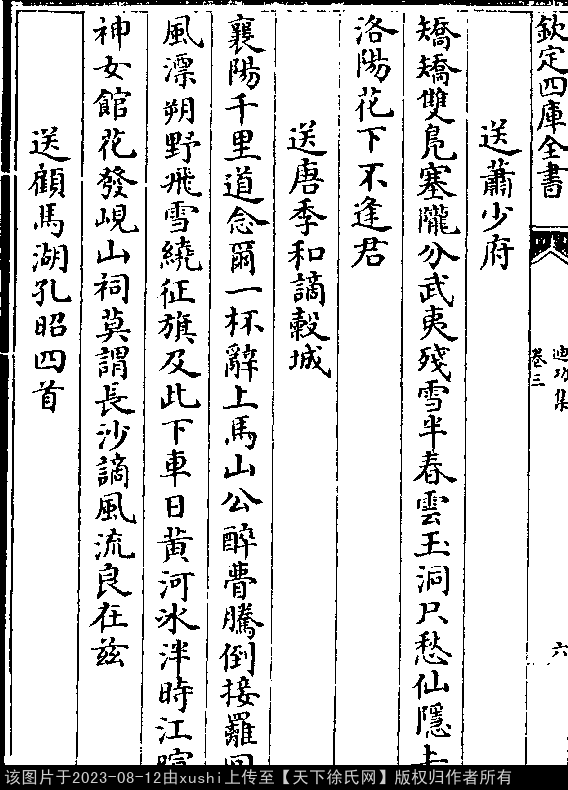 欽定四庫全書
迪功集
卷三
六
送蕭少府
矯矯雙鳧塞隴分武夷殘雪半春雲玉洞只愁仙隱去
洛陽花下不逢君
送唐季和謫穀城
襄陽千里道念爾一杯辭上馬山公醉瞢騰倒接羅
風漂朔野飛雪繞征旗及此下車日黃河冰泮時江
神女館花發峴山祠莫謂長沙謫風流良在茲
送顧馬湖孔昭四首
该图片于2023-08-12由xushi上传至【天下徐氏网】版权归作者所有